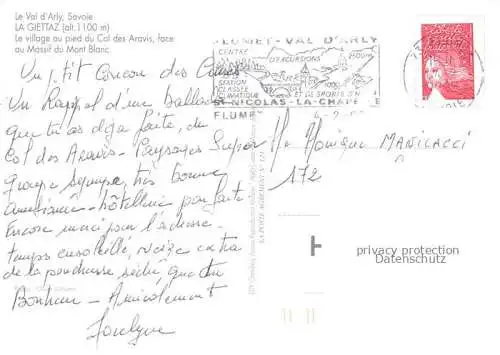 Le Val d'Arly, Savoie
LA GIETTAZ (alt.1100 m)
Le village au pied du Col des Aravis, face
au Massif du Mont Blanc.
FLUMET-VAL D'ARLY
CENTRE
D'EXCURSIONS
STATION
CLASSÉE
CLIMATIQUE
ET DE SPORTS
ST NICOLAS-LA-CHAPELLE
FLUMET
Un p'tit Coucou des Cimes
Un Rappel d'une ballade
que tu as déjà faite, du
Col des Aravis - Paysages Super
groupe sympa, très bonne
ambiance - hôtellerie parfaite
Encore merci pour l'adresse
temps ensoleillé, neige extra
de la poudreuse
Bonheur - Amicalement
Jocelyne
Melle Monique MANICACCI
172
LA POSTE AGRÉMENT N°
privacy protection
Datenschutz